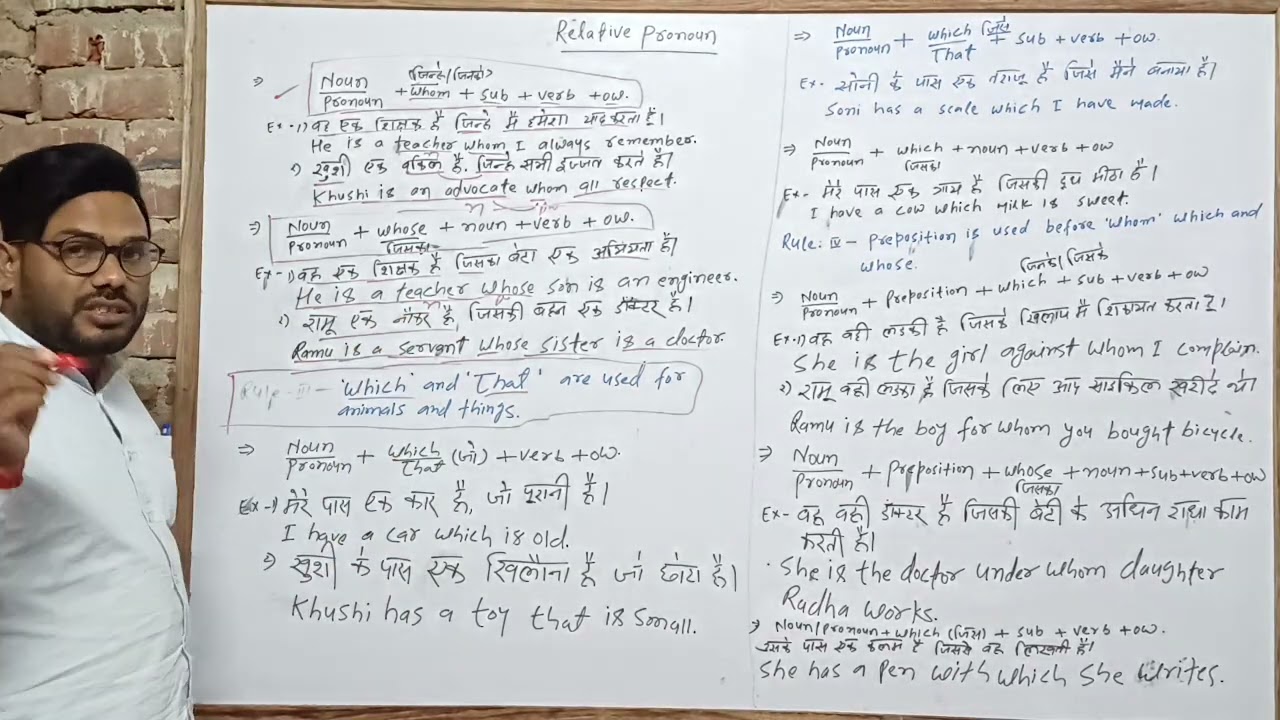 Relative Pronoun
⇒ Noun/Pronoun + whom (जिन्हे/जिनको) + sub + verb + ow.
Ex-1) वह एक शिक्षक है जिन्हे मैं हमेशा याद करता हूँ।
He is a teacher whom I always remember.
2) खुशी एक वकिल है, जिन्हे सभी इज्जत करते हैं।
Khushi is an advocate whom all respect.
⇒ Noun/Pronoun + whose (जिसका) + noun + verb + ow.
Ex-1) वह एक शिक्षक है जिसका बेटा एक अभियंता है।
He is a teacher whose son is an engineer.
2) रामू एक नौकर है, जिसकी बहन एक डॉक्टर है।
Ramu is a servant whose sister is a doctor.
Rule-III – 'which' and 'That' are used for
animals and things.
⇒ Noun/Pronoun + which/That (जो) + verb + ow.
Ex-1) मेरे पास एक कार है, जो पुरानी है।
I have a car which is old.
2) खुशी के पास एक खिलौना है जो छोटा है।
Khushi has a toy that is small.
⇒ Noun/Pronoun + which/That (जिसे) + sub + verb + ow.
Ex- सोनी के पास एक तराजू है जिसे मैंने बनाया है।
Soni has a scale which I have made.
⇒ Noun/Pronoun + which (जिसका) + noun + verb + ow
Ex- मेरे पास एक गाय है जिसकी दूध मीठा है।
I have a cow which milk is sweet.
Rule: IV – Preposition is used before 'whom' which and
whose.
⇒ Noun/Pronoun + Preposition + which (जिनके/जिसके) + sub + verb + ow
Ex-1) वह वही लडकी है जिसके खिलाफ मैं शिकायत करता हूँ।
She is the girl against whom I complain.
2) रामू वही लडका है जिसके लिए आप साइकिल खरीदे थे।
Ramu is the boy for whom you bought bicycle.
⇒ Noun/Pronoun + Preposition + whose (जिसका) + noun + sub + verb + ow
Ex- वह वही डॉक्टर है जिसकी बेटी के अधिन राधा काम
करती है।
She is the doctor under whom daughter
Radha works.
⇒ Noun/Pronoun + which (जिस) + sub + verb + ow.
उसके पास एक कलम है जिससे वह लिखती है।
She has a pen with which she writes.